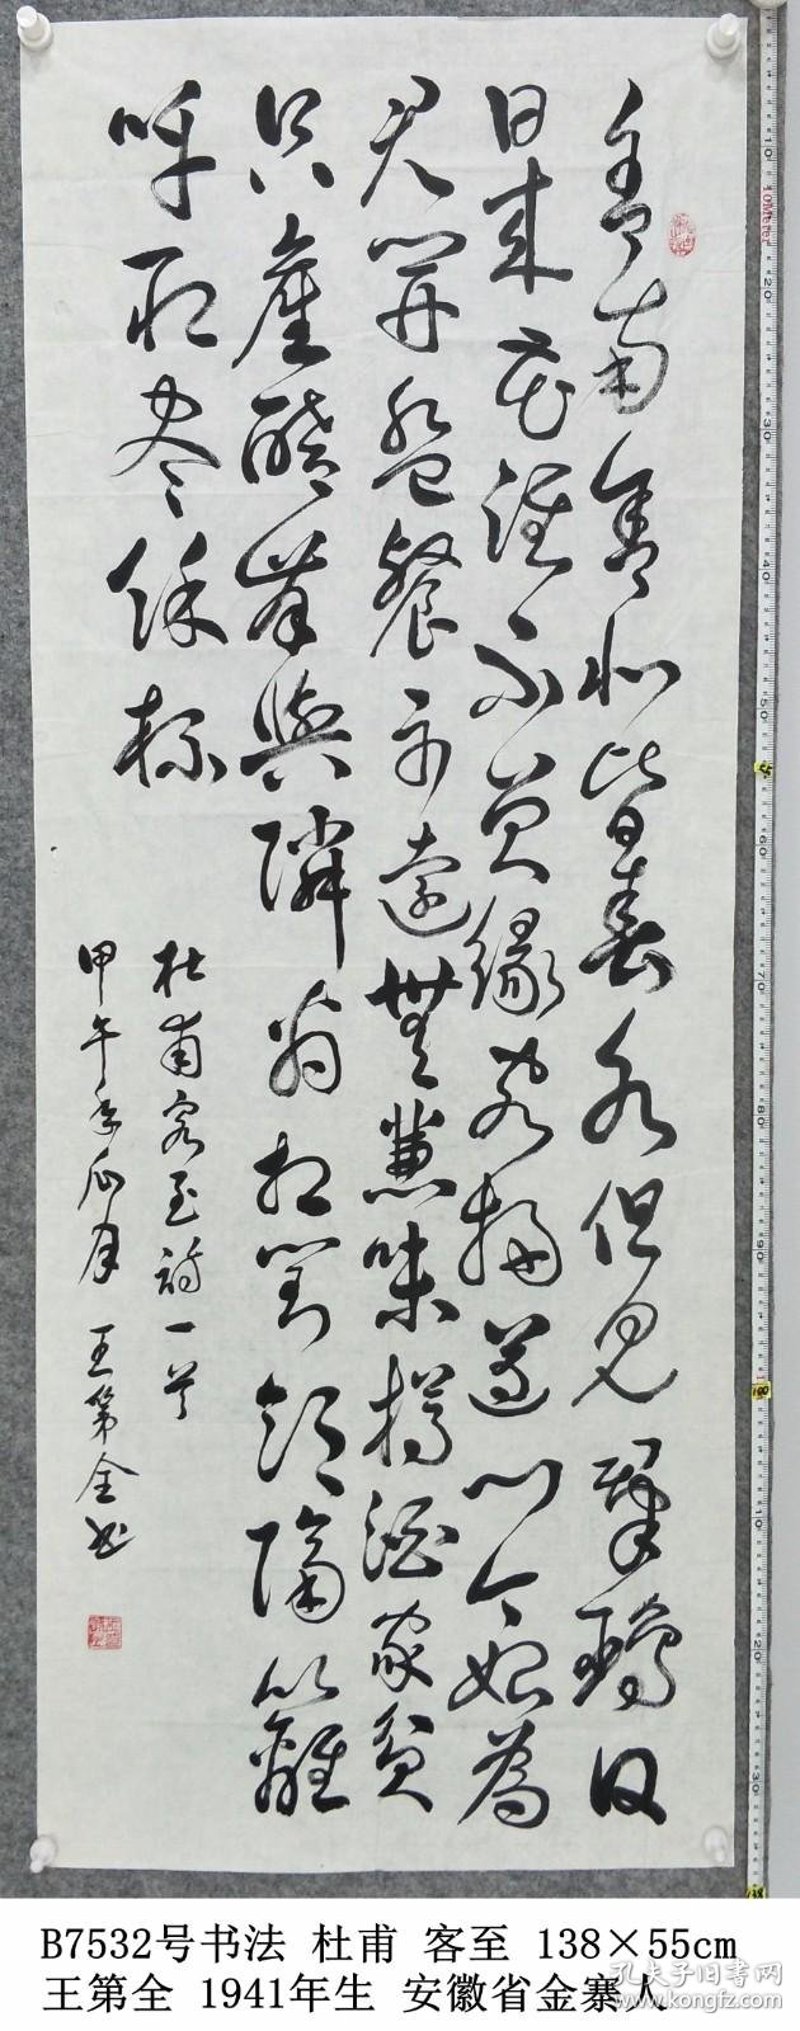 舍南舍北皆春水但見群鷗日
日來花徑不曾緣客掃蓬門今始為
君開盤餐市遠無兼味樽酒家貧
只舊醅肯與隣翁相對飲隔籬
呼取尽餘杯
杜甫客至詩一首
甲午年瓜月 王第全书
B7532号书法 杜甫 客至 138×55cm
王第全 1941年生 安徽省金寨人
孔夫子旧书网
www.kongfz.com